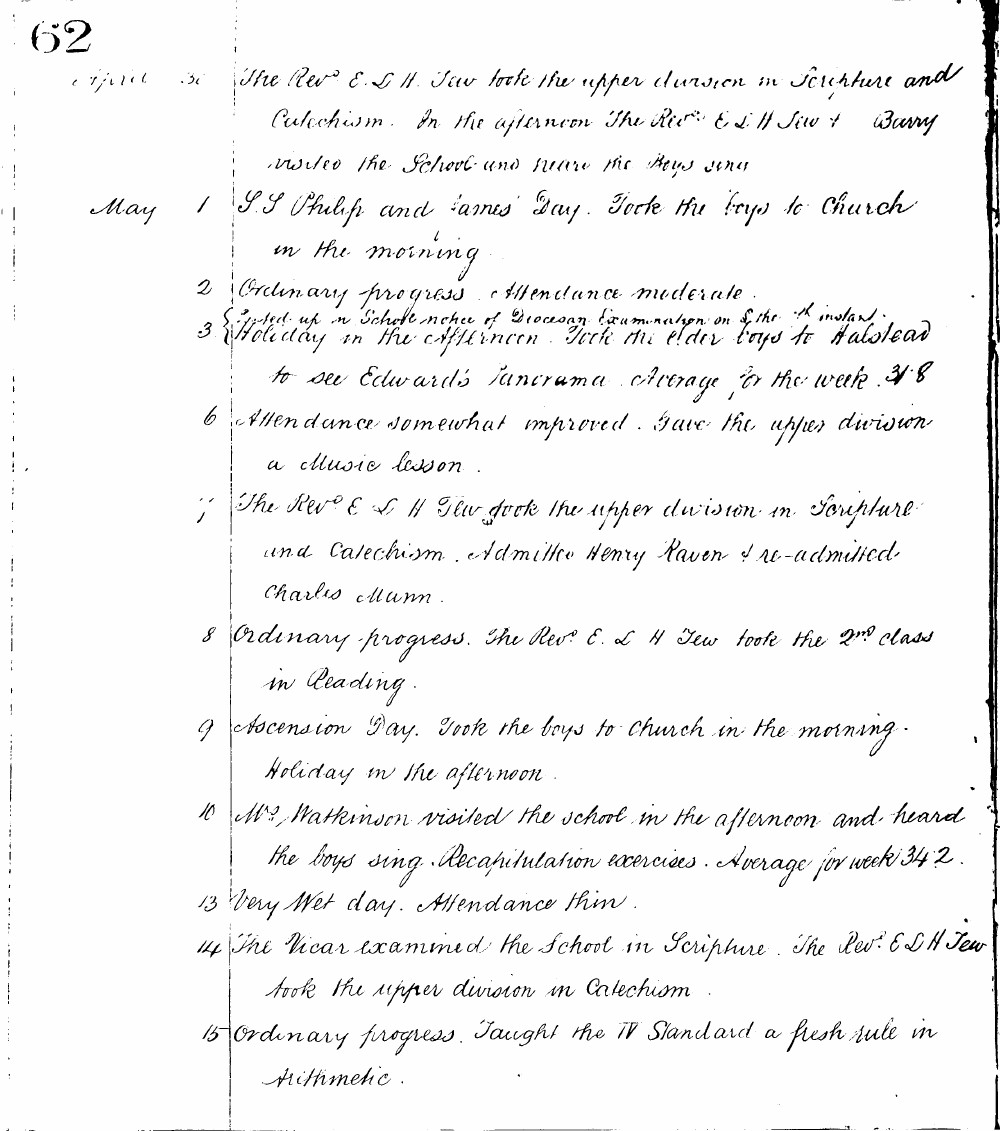 62
April 30 The Revd. E. L. H. Tew took the upper division in Scripture and
Catechism. In the afternoon The Revds. E L H Tew & Barry
visited the School and heard the Boys sing
May 1 S.S Philip and James' Day. Took the boys to Church
in the morning
2 Ordinary progress. Attendance moderate.
Posted up in School notice of Diocesan Examination on the instant.
3 Holiday in the Afternoon. Took the elder boys to Halstead
to see Edward's Panorama. Average for the week. 31.8
6 Attendance somewhat improved. Gave the upper division
a Music lesson.
7 The Revd. E L H Tew took the upper division in Scripture
and Catechism. Admitted Henry Raven & re-admitted
Charles Mann.
8 Ordinary progress. The Revd. E. L H Tew took the 2nd class
in Reading.
9 Ascension Day. Took the boys to Church in the morning.
Holiday in the afternoon.
10 Mrs. Watkinson visited the school in the afternoon and heard
the boys sing. Recapitulation exercises. Average for week 34.2.
13 Very Wet day. Attendance thin.
14 The Vicar examined the School in Scripture. The Revd. E L H Tew
took the upper division in Catechism.
15 Ordinary progress. Taught the IV Standard a fresh rule in
Arithmetic.